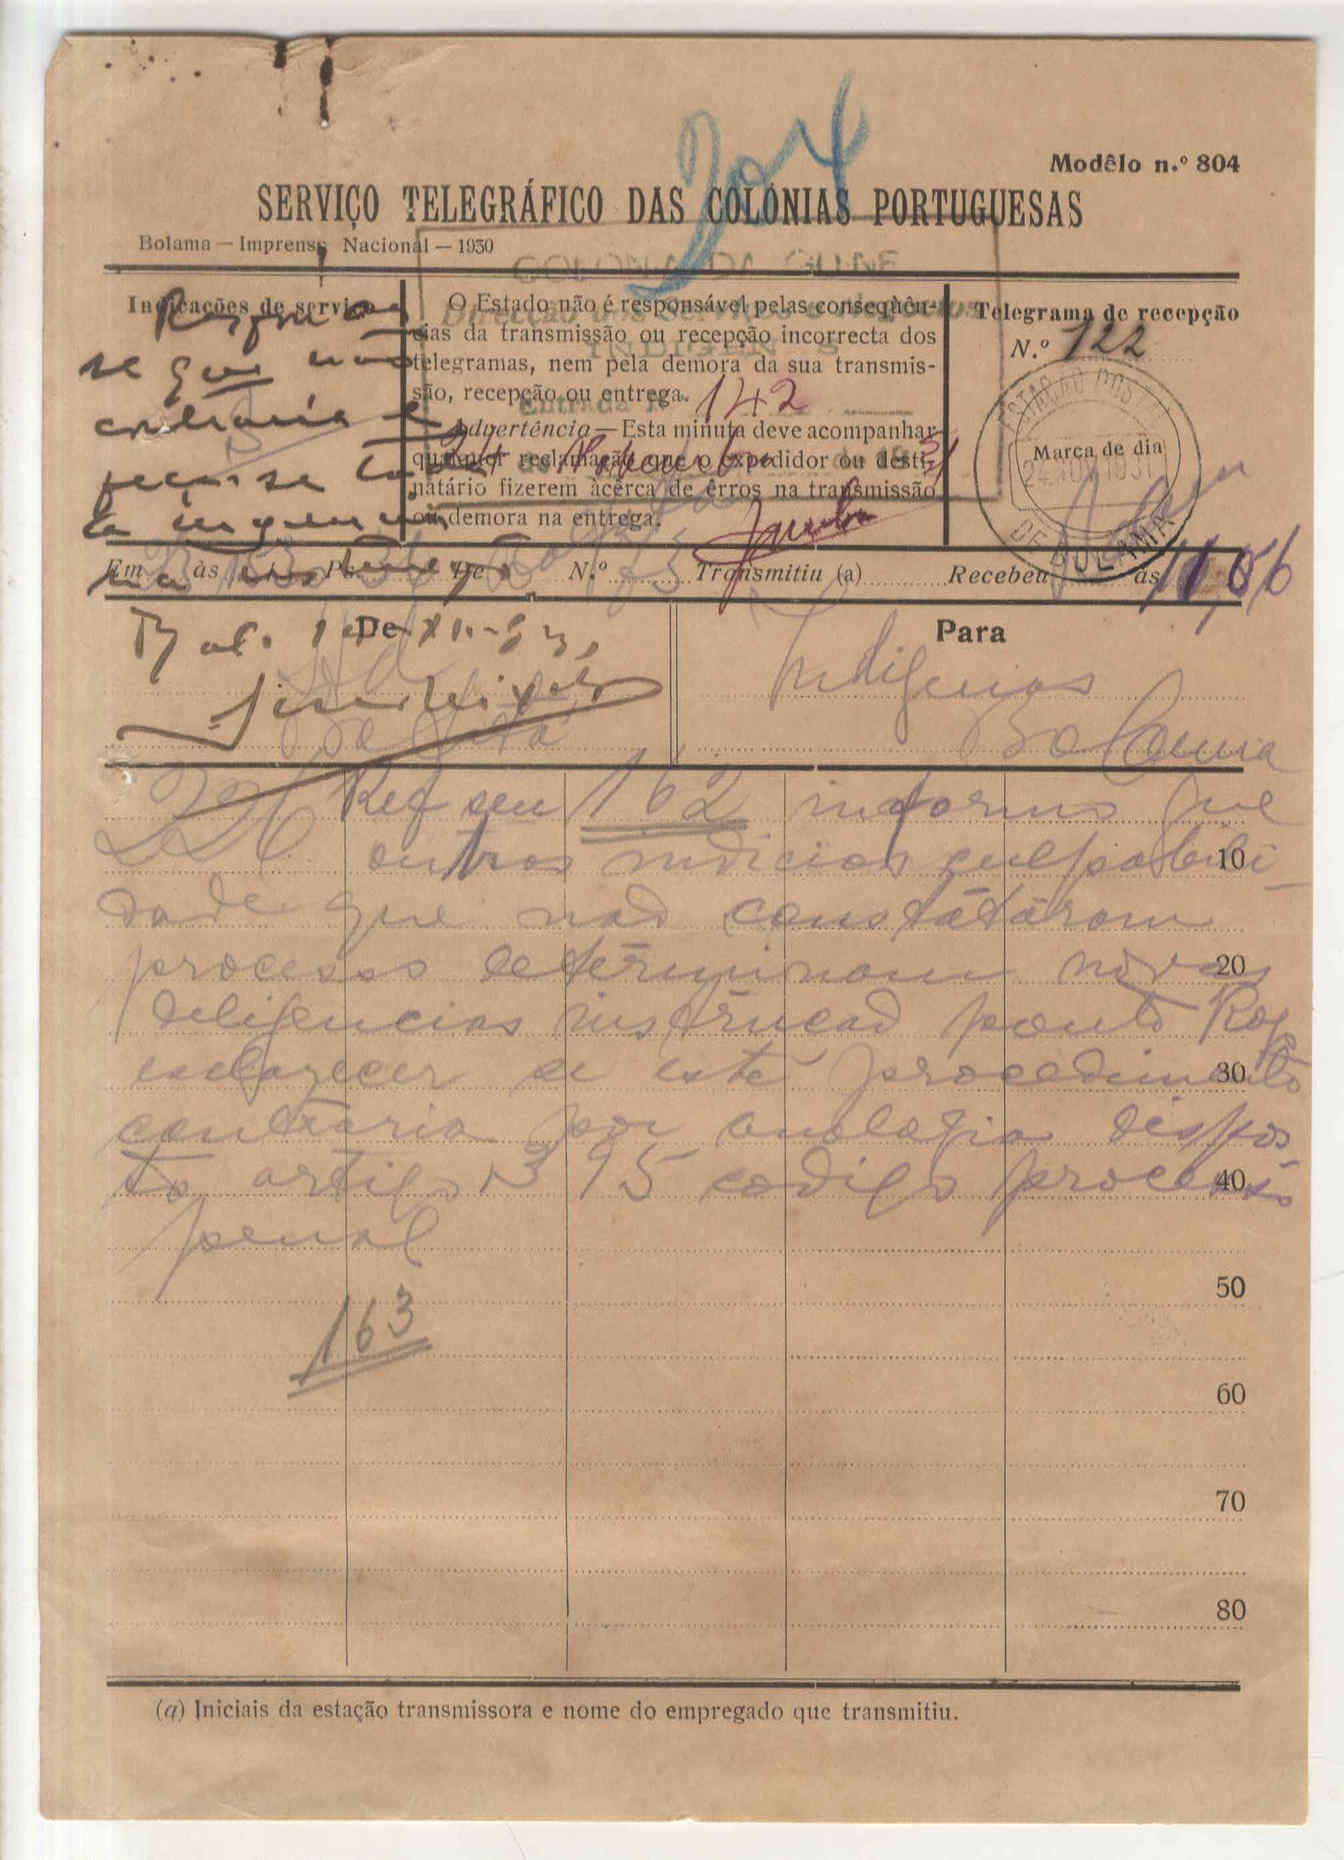 204
Modêlo n.º 804
SERVIÇO TELEGRÁFICO DAS COLÓNIAS PORTUGUESAS
Bolama — Imprensa Nacional — 1930
COLONIA DA GUINÉ
Direcção dos Serviços e Negocios
INDIGENAS
Entrada N.º 142
24 de Novembro de 1931
Indicações de serviço
Responda-
se que não
contraria e
peça-se to
da urgencia
na
Bol. XI-931
O Estado não é responsável pelas conseqüên-
cias da transmissão ou recepção incorrecta dos
telegramas, nem pela demora da sua transmis-
são, recepção ou entrega.
Advertência — Esta minuta deve acompanhar
qualquer reclamação que o expedidor ou desti-
natário fizerem àcêrca de êrros na transmissão
ou demora na entrega.
Telegrama de recepção
N.º 122
ESTAÇÃO POSTAL
Marca de dia
24 NOV 1931
DE BULAMA
Em às P. De N.º Transmitiu (a) Recebeu às 11,56
De
Para
Indigenas
Bolama
Ref seu 162 informo que
outros indicios culpabili
dade que não constataram
processo determinam novas
diligencias instrução ponto Rogo
esclarecer se este procedimento
contraria por analogia dispos
to artigo 395 codigo processo
penal
163
10
20
30
40
50
60
70
80
(a) Iniciais da estação transmissora e nome do empregado que transmitiu.